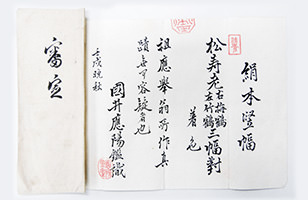 絹本竪幅
松寿老 右梅鶴 左竹鶴 三幅對
着色
祖應擧翁所作真
蹟無可容疑者也
壬戌晩秋
國井應陽鑑識
審定